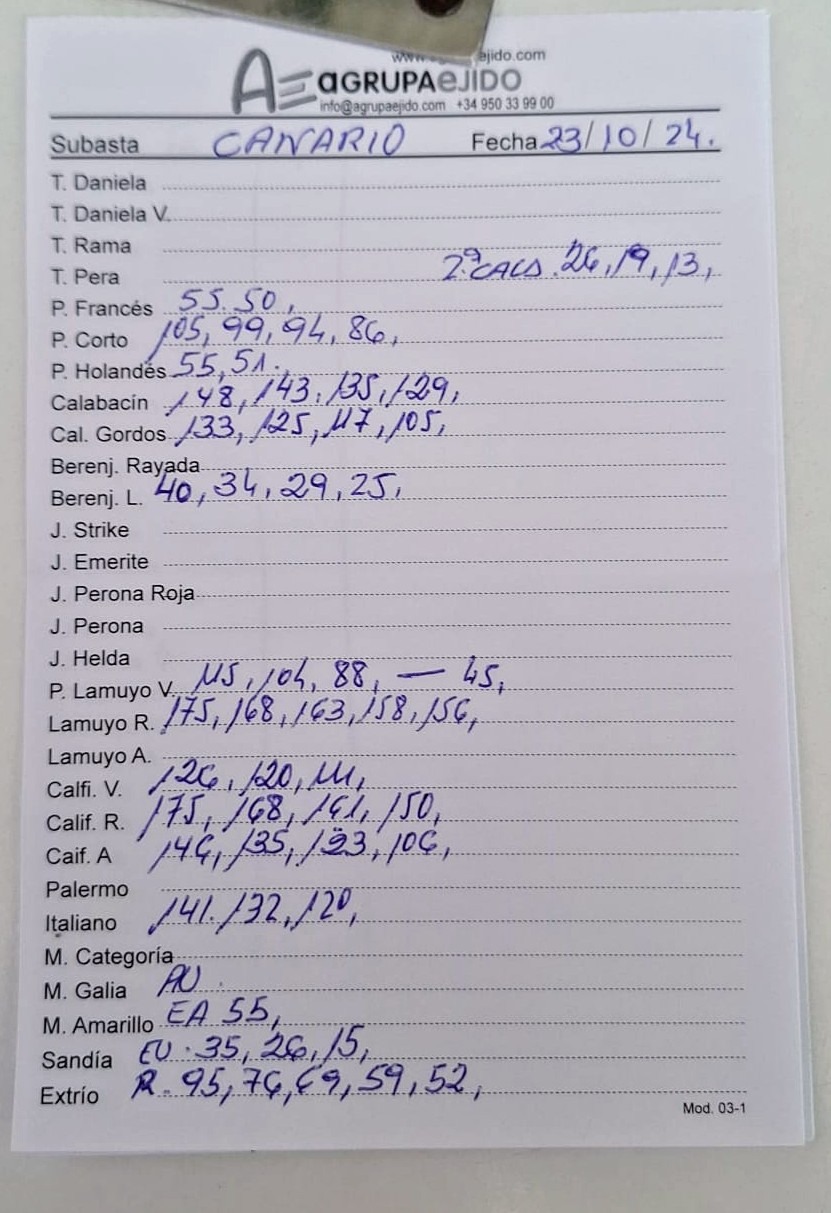 ejido.com
AGRUPAEJIDO
info@agrupaejido.com +34 950 33 99 00
Subasta CANARIO Fecha 23/10/24.
T. Daniela
T. Daniela V.
T. Rama
T. Pera 2ª CALS 26, 19, 13,
P. Francés 55. 50,
P. Corto 105, 99, 94, 86,
P. Holandés 55, 51.
Calabacín 148, 143, 135, 129,
Cal. Gordos 133, 125, 117, 105,
Berenj. Rayada
Berenj. L. 40, 34, 29, 25,
J. Strike
J. Emerite
J. Perona Roja
J. Perona
J. Helda
P. Lamuyo V. 115, 104, 88, — 45,
Lamuyo R. 175, 168, 163, 158, 156,
Lamuyo A.
Calfi. V. 126, 120, 111,
Calif. R. 175, 168, 161, 150,
Caif. A 146, 135, 123, 106,
Palermo
Italiano 141. 132, 120,
M. Categoría
M. Galia
M. Amarillo EA 55,
Sandía EU. 35, 26, 15,
Extrío R. 95, 76, 69, 59, 52,
Mod. 03-1